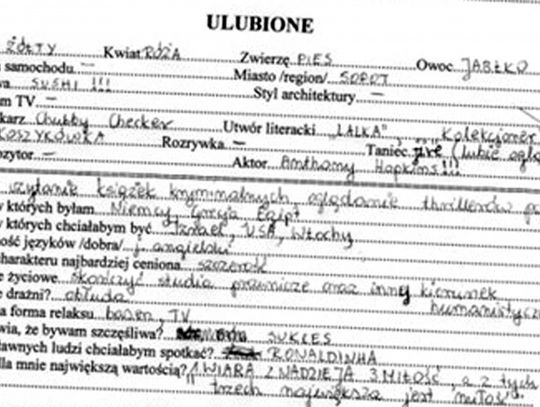 ULUBIONE
ŻÓŁTY Kwiat RÓŻA Zwierzę PIES Owoc JABŁKO
samochodu — Miasto /region/ SOPOT
SUSHI !!! Styl architektury —
m TV — 
karz Chubby Checker Utwór literacki „LALKA”, „Kolekcjoner
KOSZYKÓWKA Rozrywka — Taniec jive (lubię oglą
ozytor — Aktor Anthony Hopkins !!!
czytanie książek kryminalnych, oglądanie thrillerów po
w których byłam Niemcy, Grecja, Egipt
w których chciałabym być Izrael, USA, Włochy
ość języków /dobra/ j. angielski
charakteru najbardziej ceniona szczerość
e życiowe skończyć studia prawnicze oraz inny kierunek
humanistyczn
e drażni? obłuda
a forma relaksu basen, TV
wia, że bywam szczęśliwa? SUKCES
ławnych ludzi chciałabym spotkać? RONALDINHA
dla mnie największą wartością? 1. WIARA 2. NADZIEJA 3. MIŁOŚĆ, a z tych
trzech największa jest miłość"